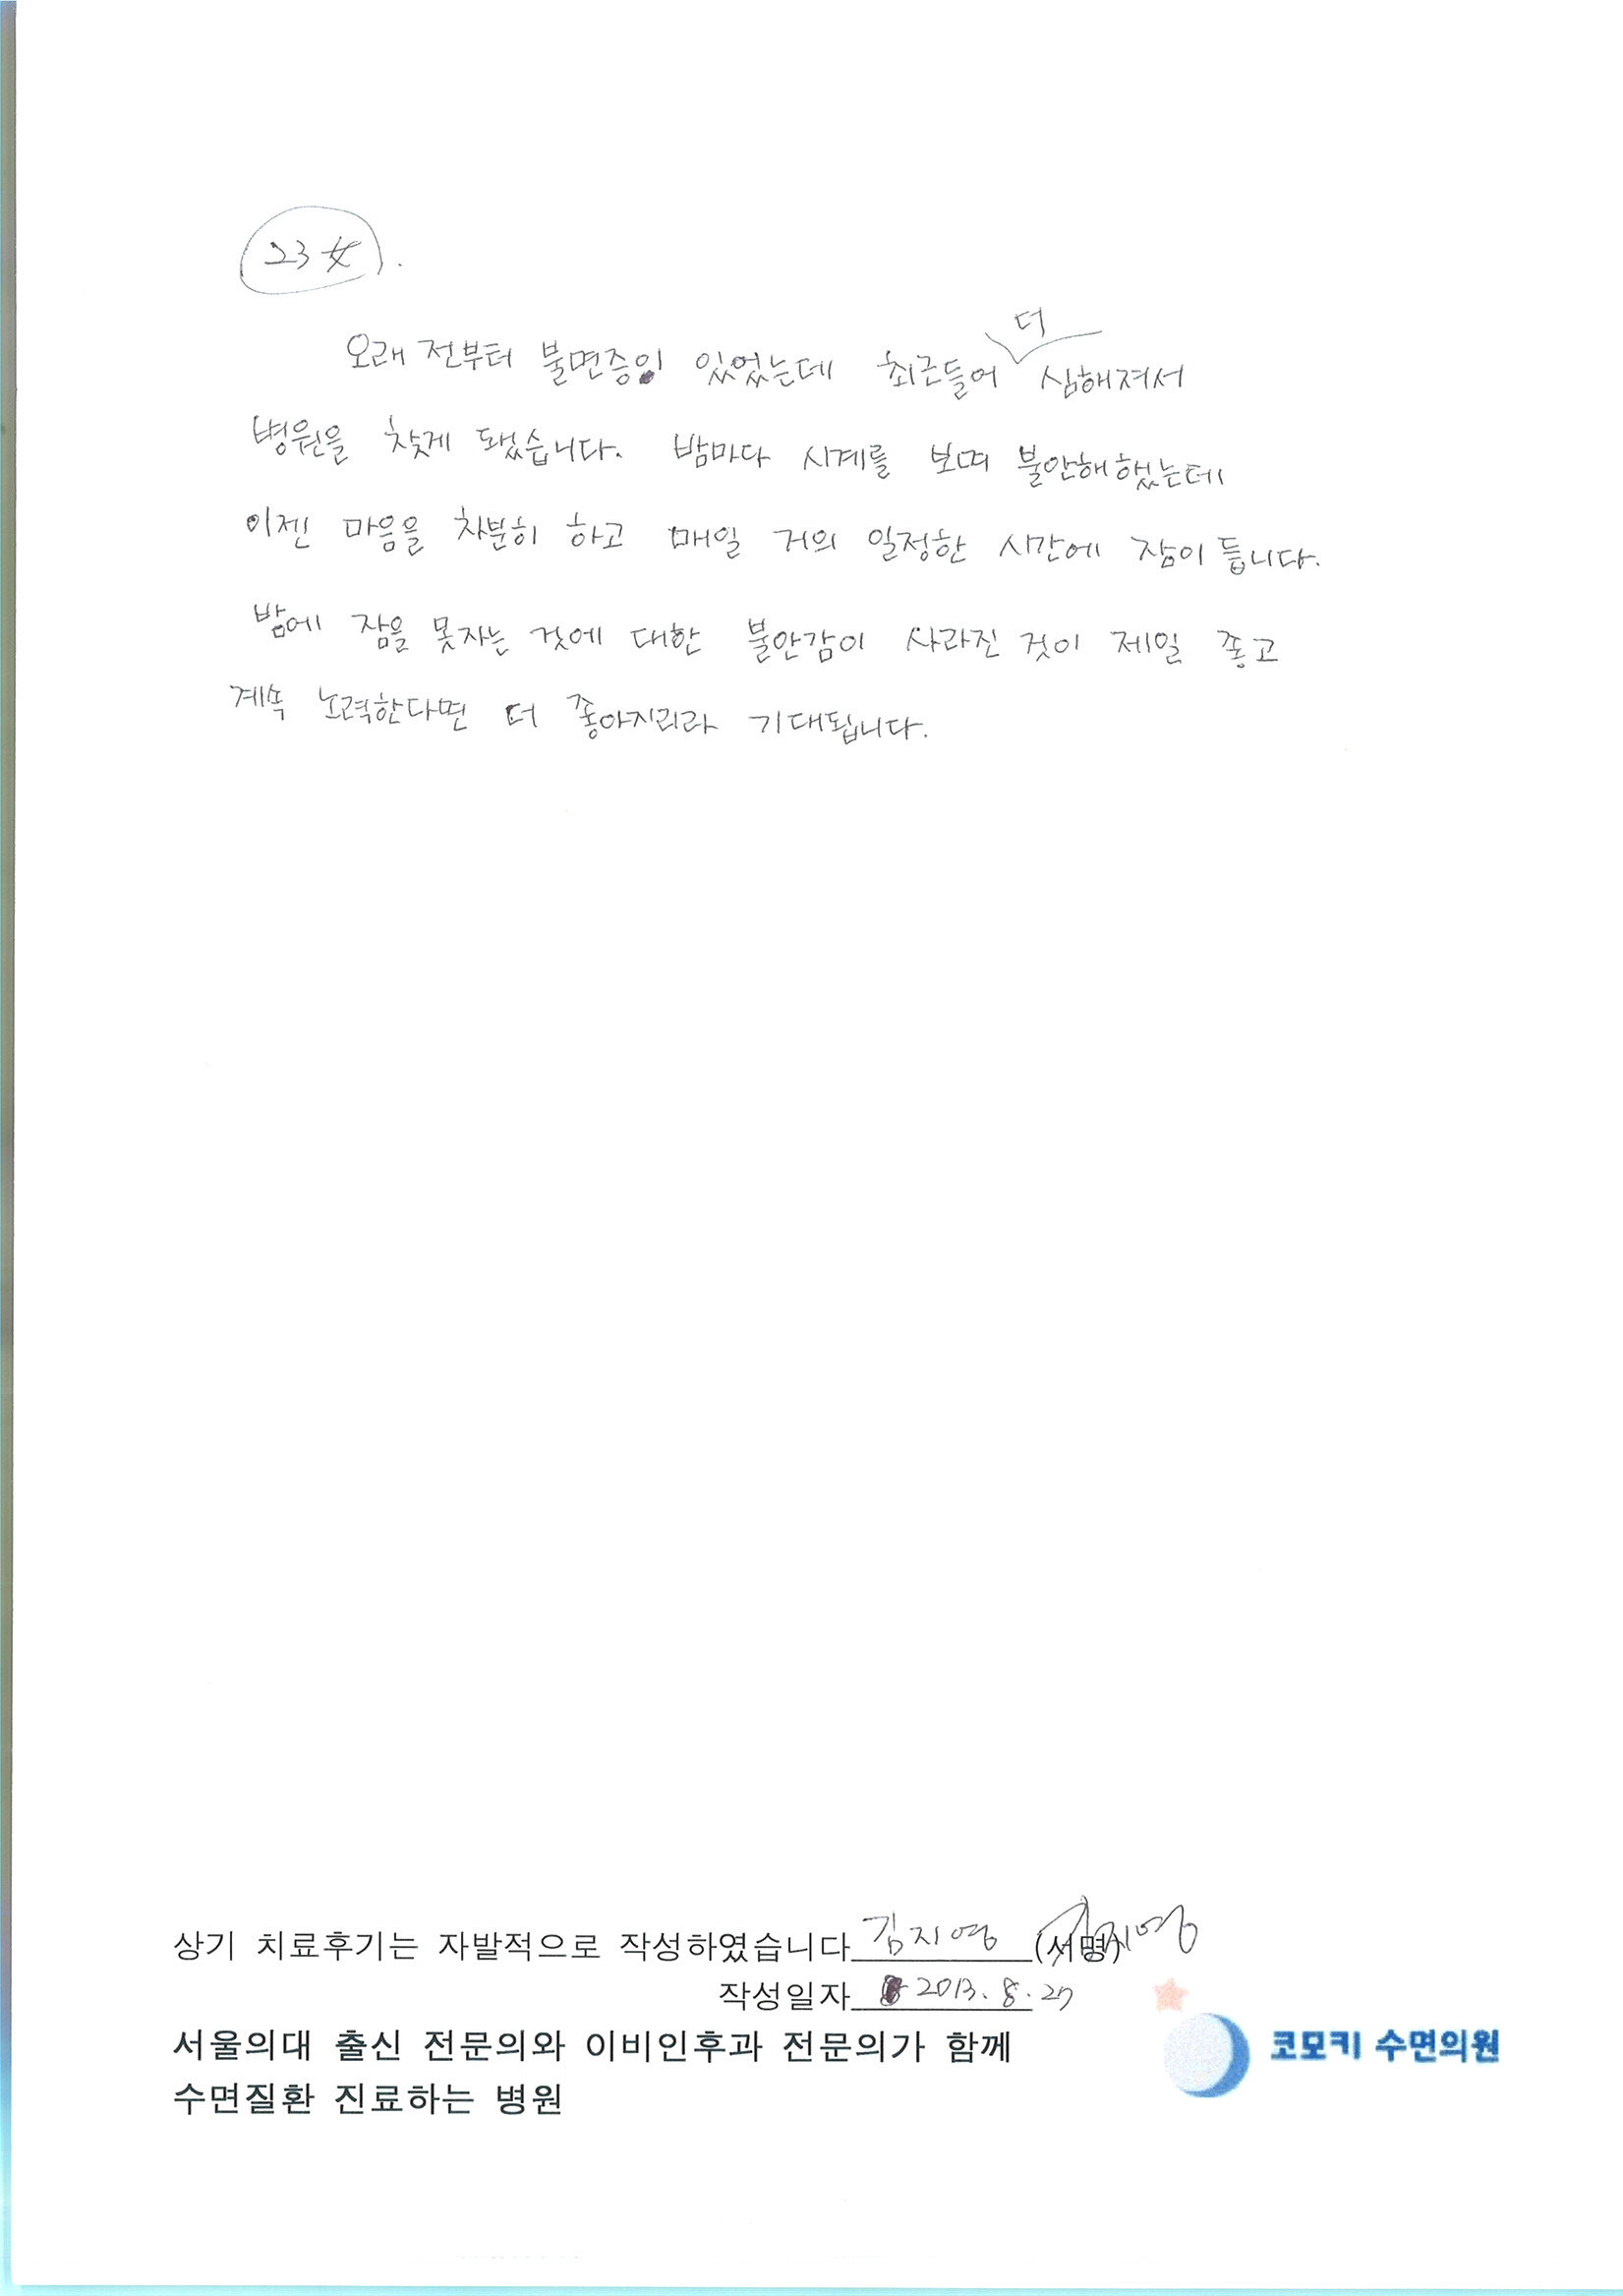 23 女.
오래 전부터 불면증이 있었는데 최근들어 더 심해져서
병원을 찾게 됐습니다. 밤마다 시계를 보며 불안해했는데
이젠 마음을 차분히 하고 매일 거의 일정한 시간에 잠이 듭니다.
밤에 잠을 못자는 것에 대한 불안감이 사라진 것이 제일 좋고
계속 노력한다면 더 좋아지리라 기대됩니다.
상기 치료후기는 자발적으로 작성하였습니다 김지영 (서명) 김지영
작성일자 2013. 8. 27
서울의대 출신 전문의와 이비인후과 전문의가 함께
수면질환 진료하는 병원
코모키 수면의원